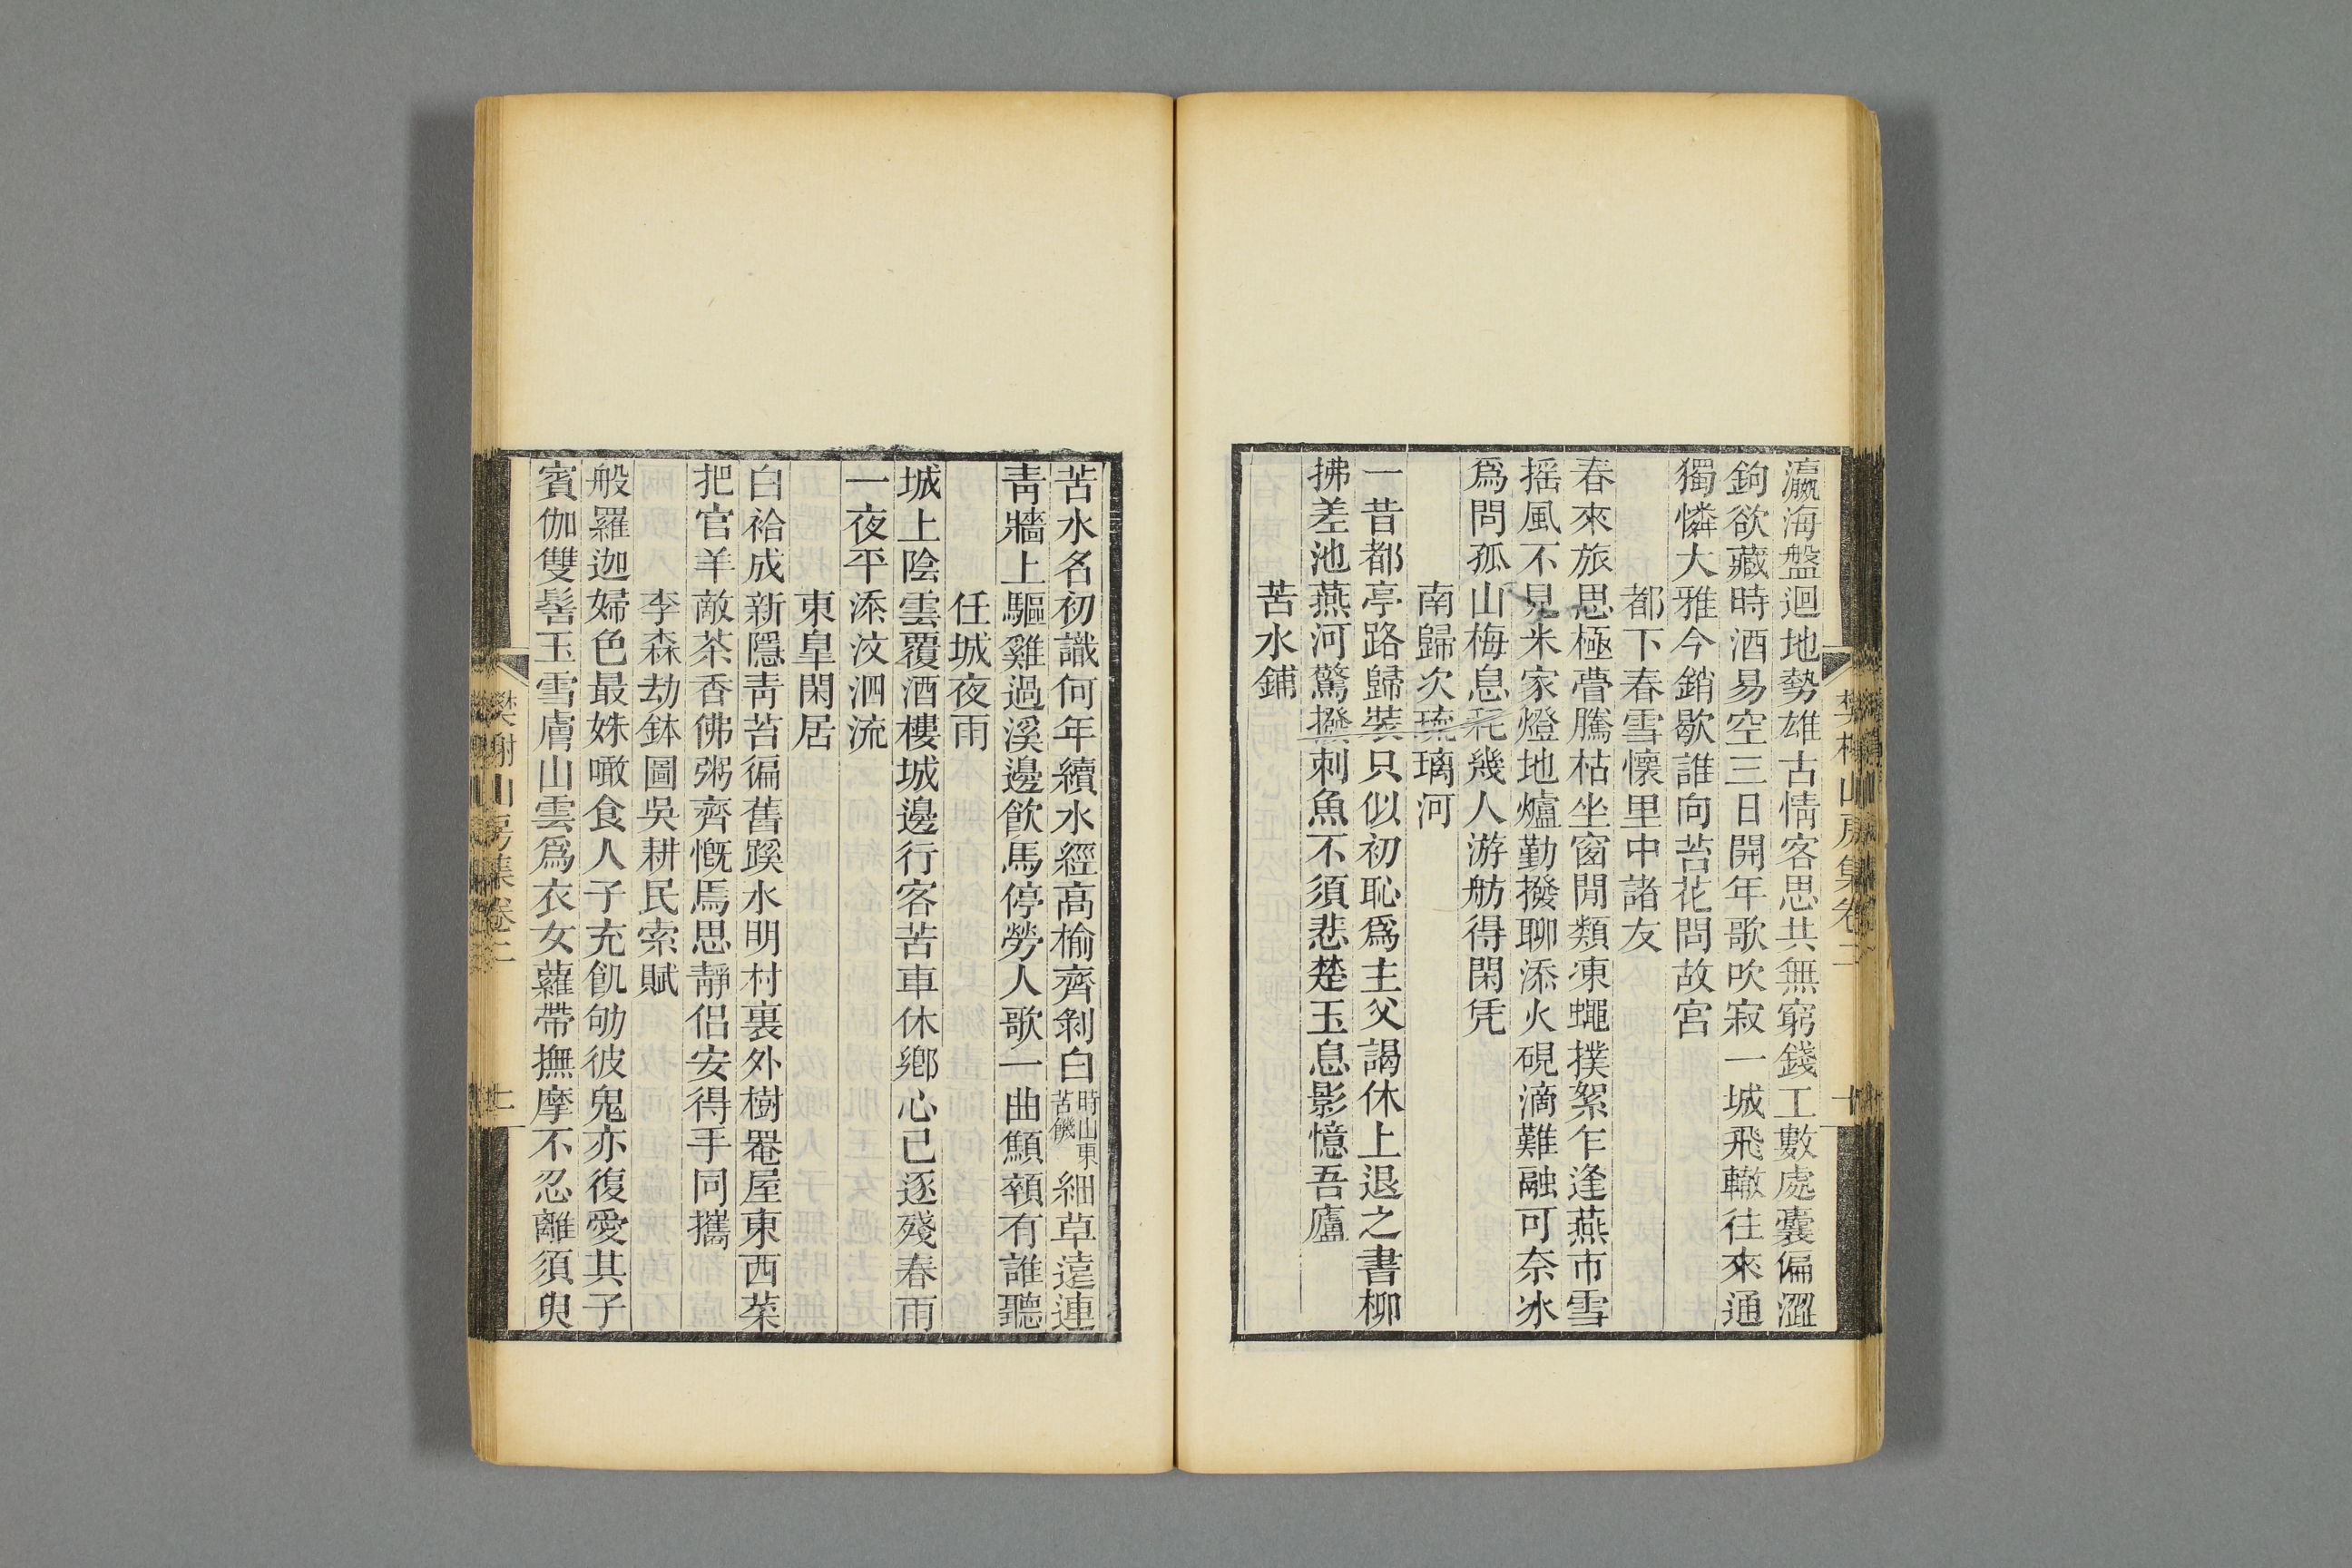 瀛海盤迴地勢雄古情客思共無窮錢工數處囊偏澀
鉤欲藏時酒易空三日開年歌吹寂一城飛轍往來通
獨憐大雅今銷歇誰向苔花問故宮
都下春雪懷里中諸友
春來旅思極瞢騰枯坐窗閒類凍蠅撲絮乍逢燕市雪
搖風不見米家燈地爐勤撥聊添火硯滴難融可奈冰
爲問孤山梅息耗幾人游舫得閑凭
南歸次琉璃河
一昔都亭路歸裝只似初恥爲主父謁休上退之書柳
拂差池燕河驚撥刺魚不須悲楚玉息影憶吾廬
苦水鋪
樊榭山房集卷二
十
苦水名初識何年續水經高榆齊剝白時山東苦饑細草遠連
靑牆上驅雞過溪邊飮馬停勞人歌一曲顦顇有誰聽
任城夜雨
城上陰雲覆酒樓城邊行客苦車休鄉心已逐殘春雨
一夜平添汶泗流
東臯閑居
白袷成新隱靑苔徧舊蹊水明村裏外樹罨屋東西菜
把官羊敵茶香佛粥齊慨焉思靜侶安得手同攜
李森劫鉢圖吳耕民索賦
般羅迦婦色最姝噉食人子充飢劬彼鬼亦復愛其子
賓伽雙髻玉雪膚山雲爲衣女蘿帶撫摩不忍離須臾
樊榭山房集卷二